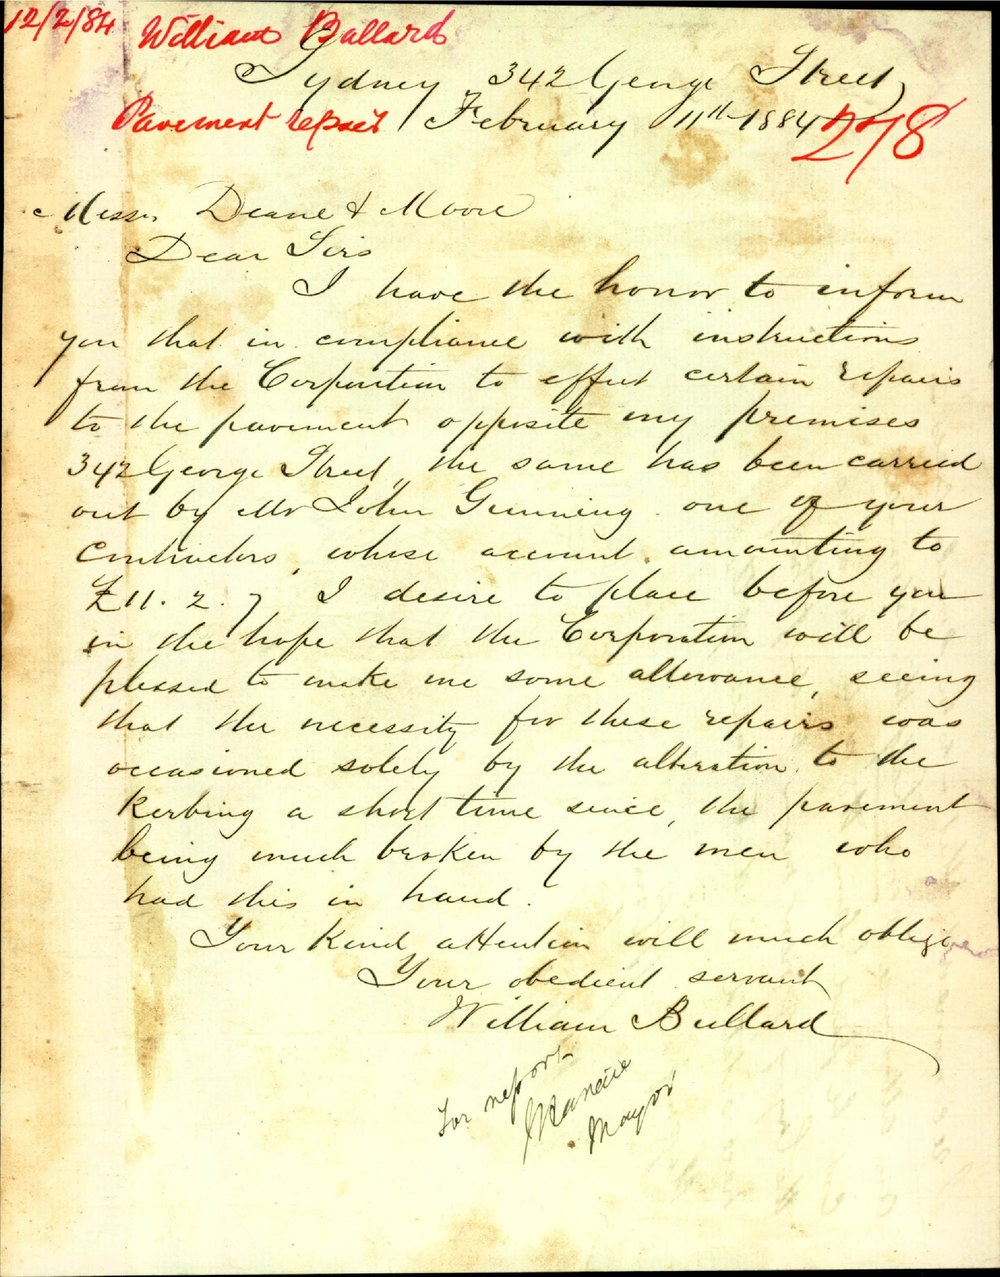 12/2/84 William Ballard
Sydney 342 George Street,
Pavement repair February 11th 1884
278
Messrs Deane & Moore
Dear Sirs
I have the honor to inform
you that in compliance with instructions
from the Corporation to effect certain repairs
to the pavement opposite my premises
342 George Street, the same has been carried
out by Mr John Gunning one of your
contractors, whose account amounting to
£11. 2. 7 I desire to place before you
in the hope that the Corporation will be
pleased to make me some allowance, seeing
that the necessity for these repairs was
occasioned solely by the alteration to the
kerbing a short time since, the pavement
being much broken by the men who
had this in hand.
Your kind attention will much oblige
Your obedient servant
William Bullard
For report
Mayor